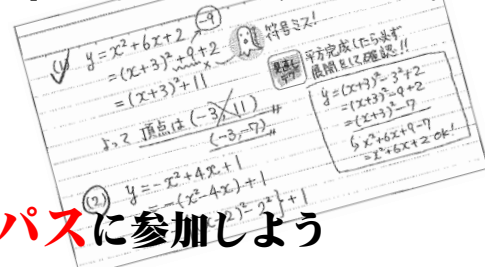 (1) y=x²+6x+2
-9
=(x+3)²+9+2
=(x+3)²+11
よって 頂点は (-3, 11)
(-3, -7)
符号ミス!
平方完成したら必ず
展開をして確認!!
y=(x+3)²-3²+2
=(x+3)²-9+2
=(x+3)²-7
x²+6x+9-7
=x²+6x+2 OK!
(2) y=-x²+4x+1
=-(x²-4x)+1
-2)²-2²}+1
パスに参加しよう